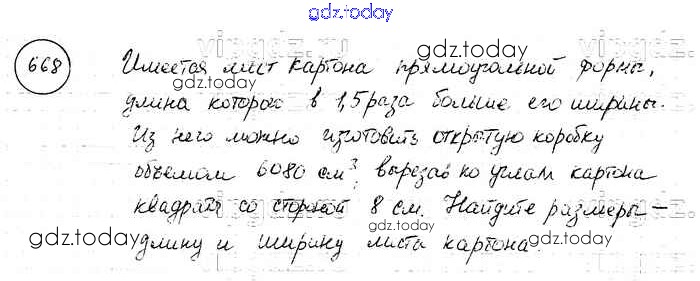 gdz.today
668 Имеется лист картона прямоугольной формы,
gdz.today
длина которого в 1,5 раза больше его ширины.
gdz.today
Из него можно изготовить открытую коробку
объемом 6080 см³, вырезав по углам картона
квадраты со стороной 8 см. Найдите размеры –
gdz.today
длину и ширину листа картона.
gdz.today gdz.today